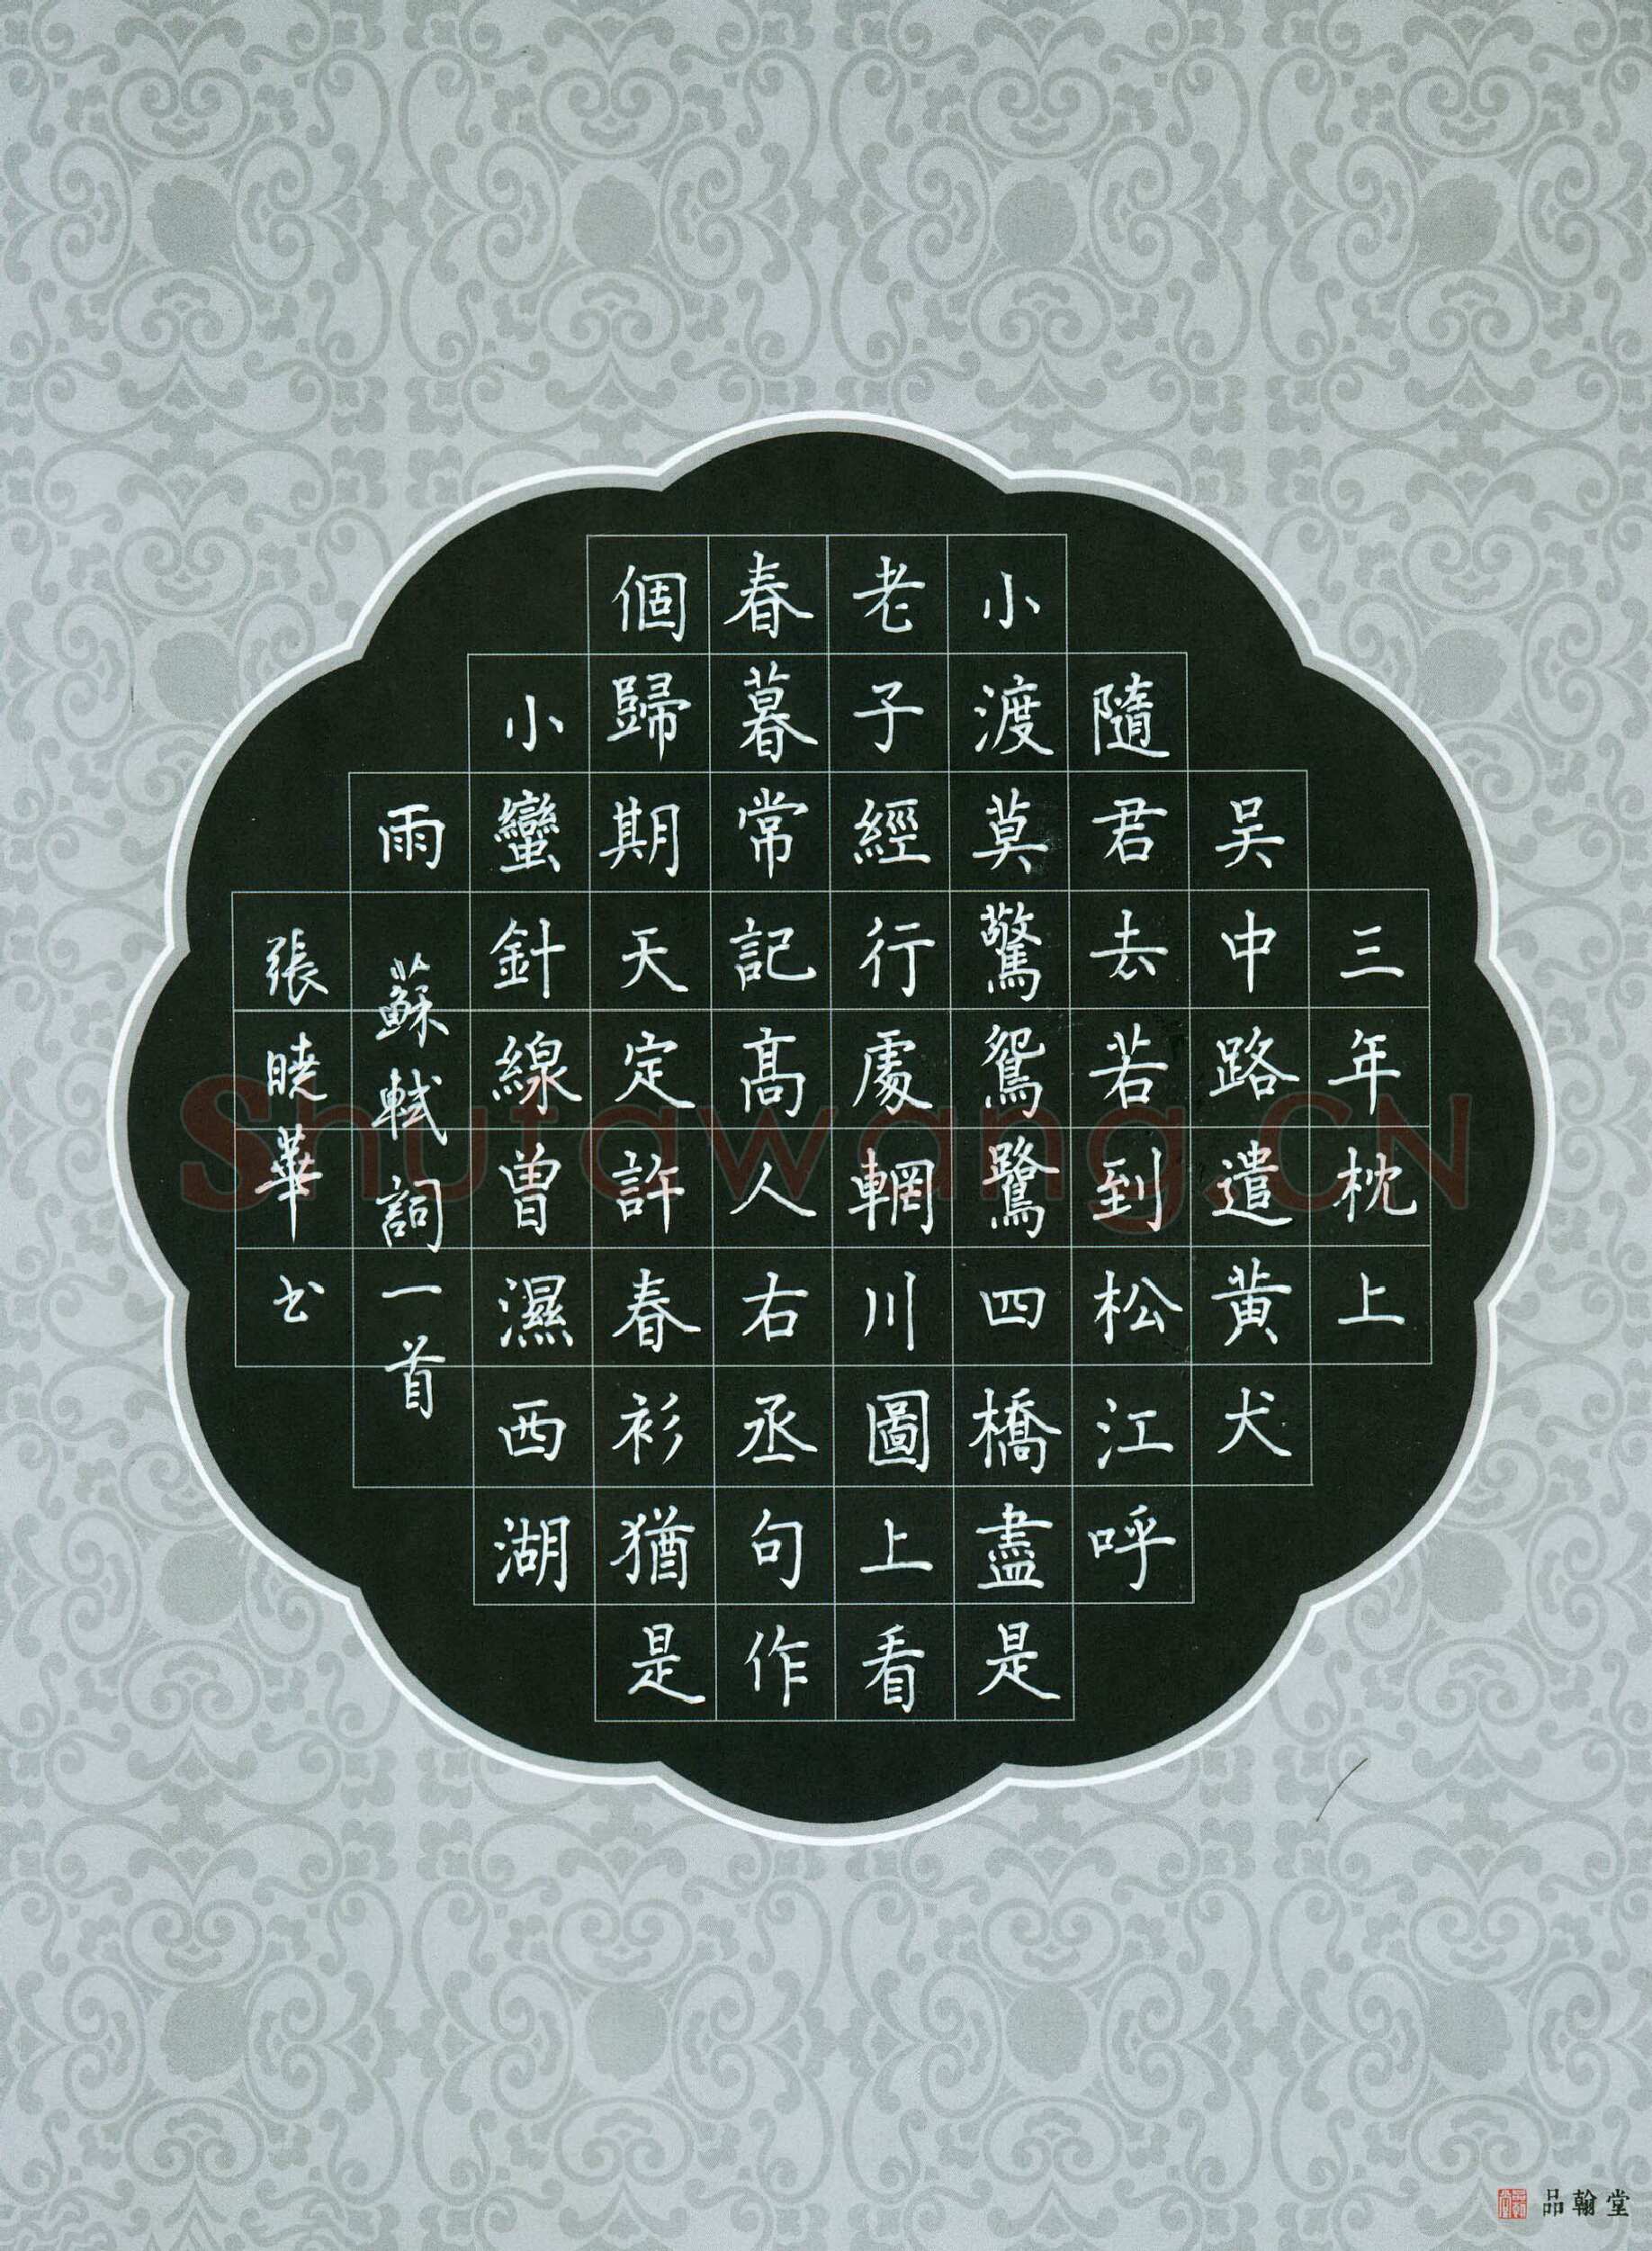 三年枕上
吴中路遣黄犬
隨君去若到松江呼
小渡莫驚鴛鷺四橋盡是
老子經行處輞川圖上看
春暮常記高人右丞句作
個歸期天定許春衫猶是
小蠻針線曾濕西湖
雨
蘇軾詞一首
張曉華书
品翰堂
Shufawang.CN